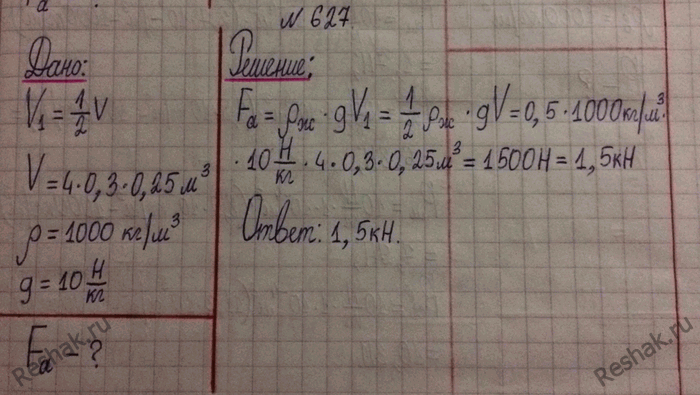 № 627.
Дано:
V₁ = 1/2 V
V = 4·0,3·0,25 м³
ρ = 1000 кг/м³
g = 10 Н/кг
Fₐ - ?
Решение:
Fₐ = ρж · gV₁ = 1/2 ρж · gV = 0,5 · 1000 кг/м³ ·
· 10 Н/кг · 4 · 0,3 · 0,25 м³ = 1500 Н = 1,5 кН
Ответ: 1,5 кН.
Reshak.ru
Reshak.ru